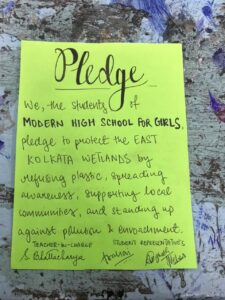 Pledge
We, the students of
MODERN HIGH SCHOOL FOR GIRLS,
pledge to protect the EAST
KOLKATA WETLANDS by
refusing plastic, spreading
awareness, supporting local
communities, and standing up
against pollution & encroachment.
TEACHER-IN-CHARGE STUDENT REPRESENTATIVES
S. Bhattacharya